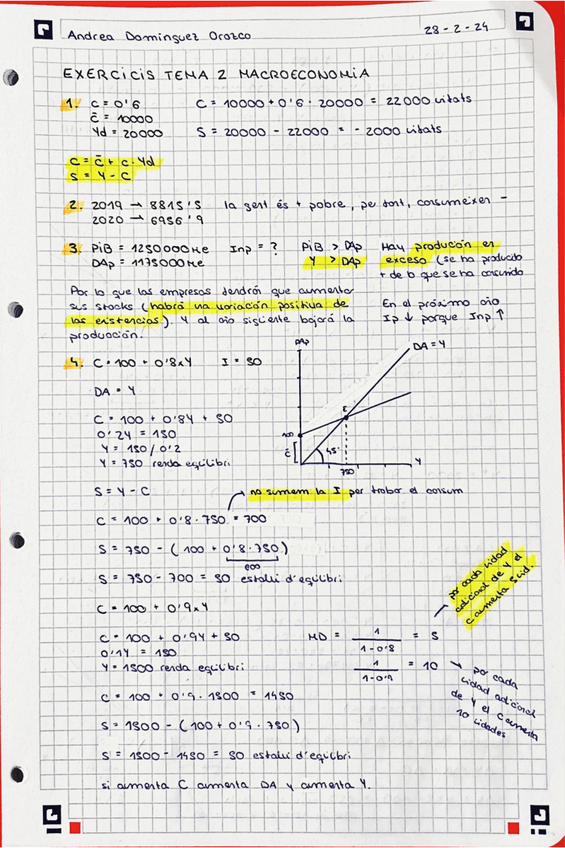 Andrea Dominguez Orozco
28-2-24
EXERCICIS TEMA 2 MACROECONOMIA
1. c = 0'6 C = 10000 + 0'6 · 20000 = 22000 unitats
c̄ = 10000
Yd = 20000 S = 20000 - 22000 = - 2000 unitats
C = c̄ + c · Yd
S = Y - C
2. 2019 → 8815'5 la gent és + pobre, per tant, consumeixen -
2020 → 6956'9
3. PiB = 1250000M€ Inp = ? PiB > DAp Hay producción en
DAp = 1175000M€ Y > DAp exceso (se ha producido
+ de lo que se ha consumido
Por lo que las empresas tendrán que aumentar
sus stocks (habrá una variación positiva de
las existencias). Y al año siguiente bajará la
producción.
En el próximo año
Ip ↓ porque Inp ↑
4. C = 100 + 0'8xY I = 50
DA = Y
C = 100 + 0'8Y + 50
0'2Y = 150
Y = 150/0'2
Y = 750 renda equilibri
DAp
DA = Y
E
100
c̄
45°
750
Y
S = Y - C
no sumem la I per trobar el consum
C = 100 + 0'8 · 750 = 700
S = 750 - (100 + 0'8 · 750)
600
S = 750 - 700 = 50 estalvi d'equilibri
C = 100 + 0'9xY
C = 100 + 0'9Y + 50
0'1Y = 150
Y = 1500 renda equilibri
MD = 1 / 1-0'8 = 5
1 / 1-0'9 = 10
por cada unidad
adicional de Y el
C aumenta 5 uid.
→ por cada
unidad adicional
de Y el C aumenta
10 unidades
C = 100 + 0'9 · 1500 = 1450
S = 1500 - (100 + 0'9 · 750)
S = 1500 - 1450 = 50 estalvi d'equilibri
si aumenta C aumenta DA y aumenta Y.